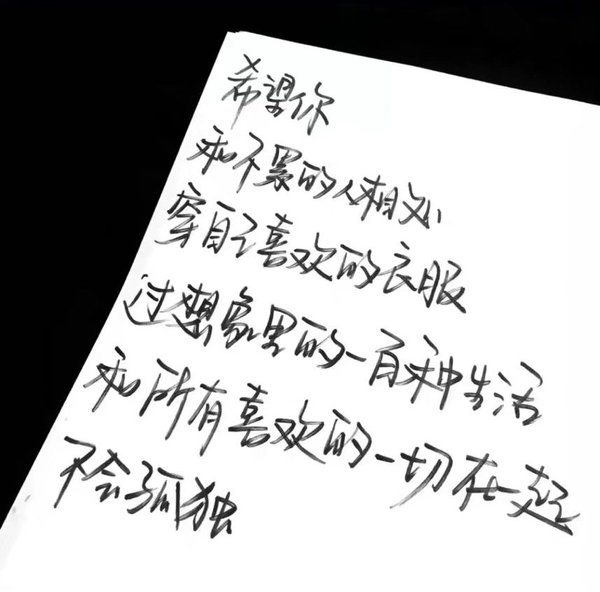 希望你
和不累的人相处
穿自己喜欢的衣服
过想象里的一百种生活
和所有喜欢的一切在一起
不会孤独